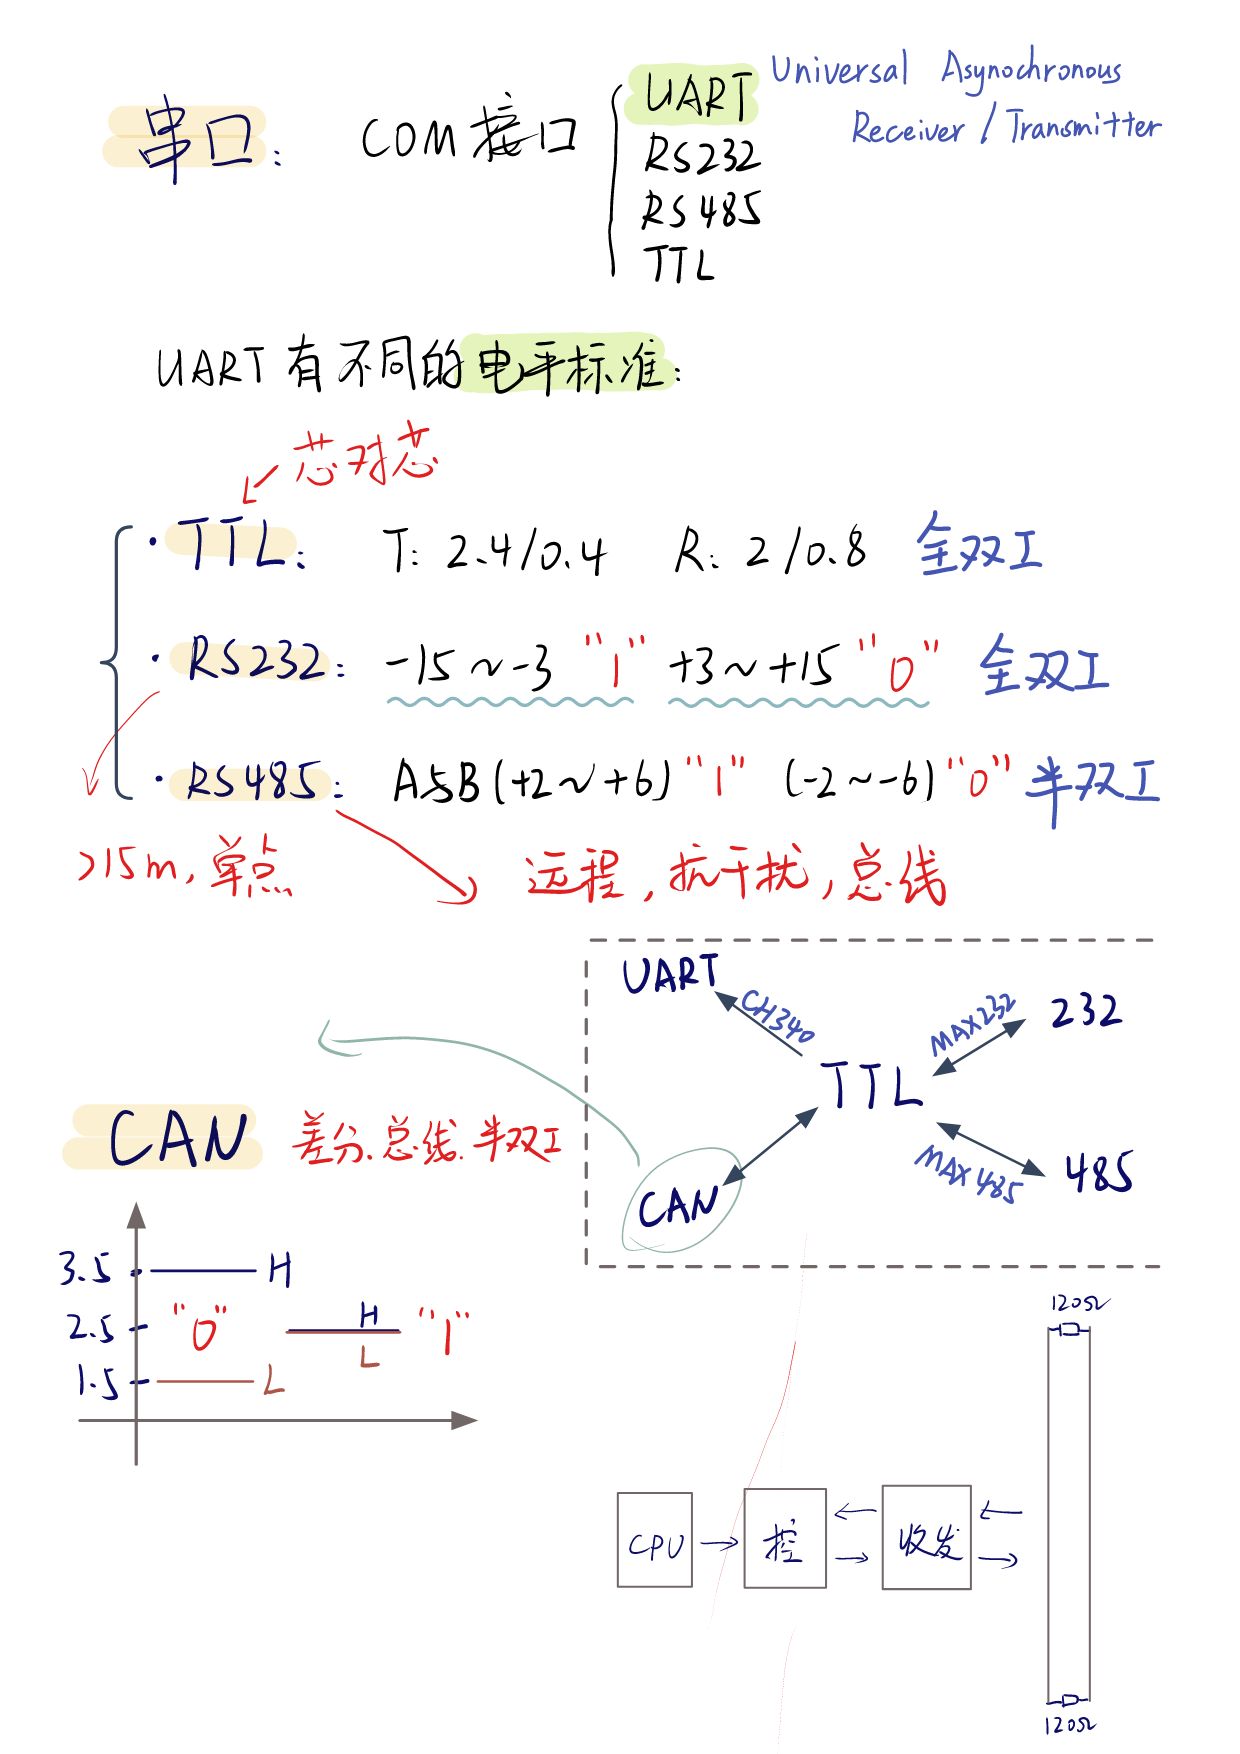 串口： COM接口
UART
RS232
RS485
TTL
Universal Asynochronous
Receiver / Transmitter
UART有不同的电平标准：
芯对芯
· TTL： T: 2.4/0.4 R: 2/0.8 全双工
· RS232： -15～-3 "1" +3～+15 "0" 全双工
· RS485： A与B (+2～+6) "1" (-2～-6) "0" 半双工
>15m, 单点
远程, 抗干扰, 总线
UART
CH340
MAX232
232
TTL
MAX485
485
CAN
CAN 差分. 总线. 半双工
3.5 H
2.5 "0" H "1"
L
1.5 L
120Ω
CPU 控 收发
120Ω